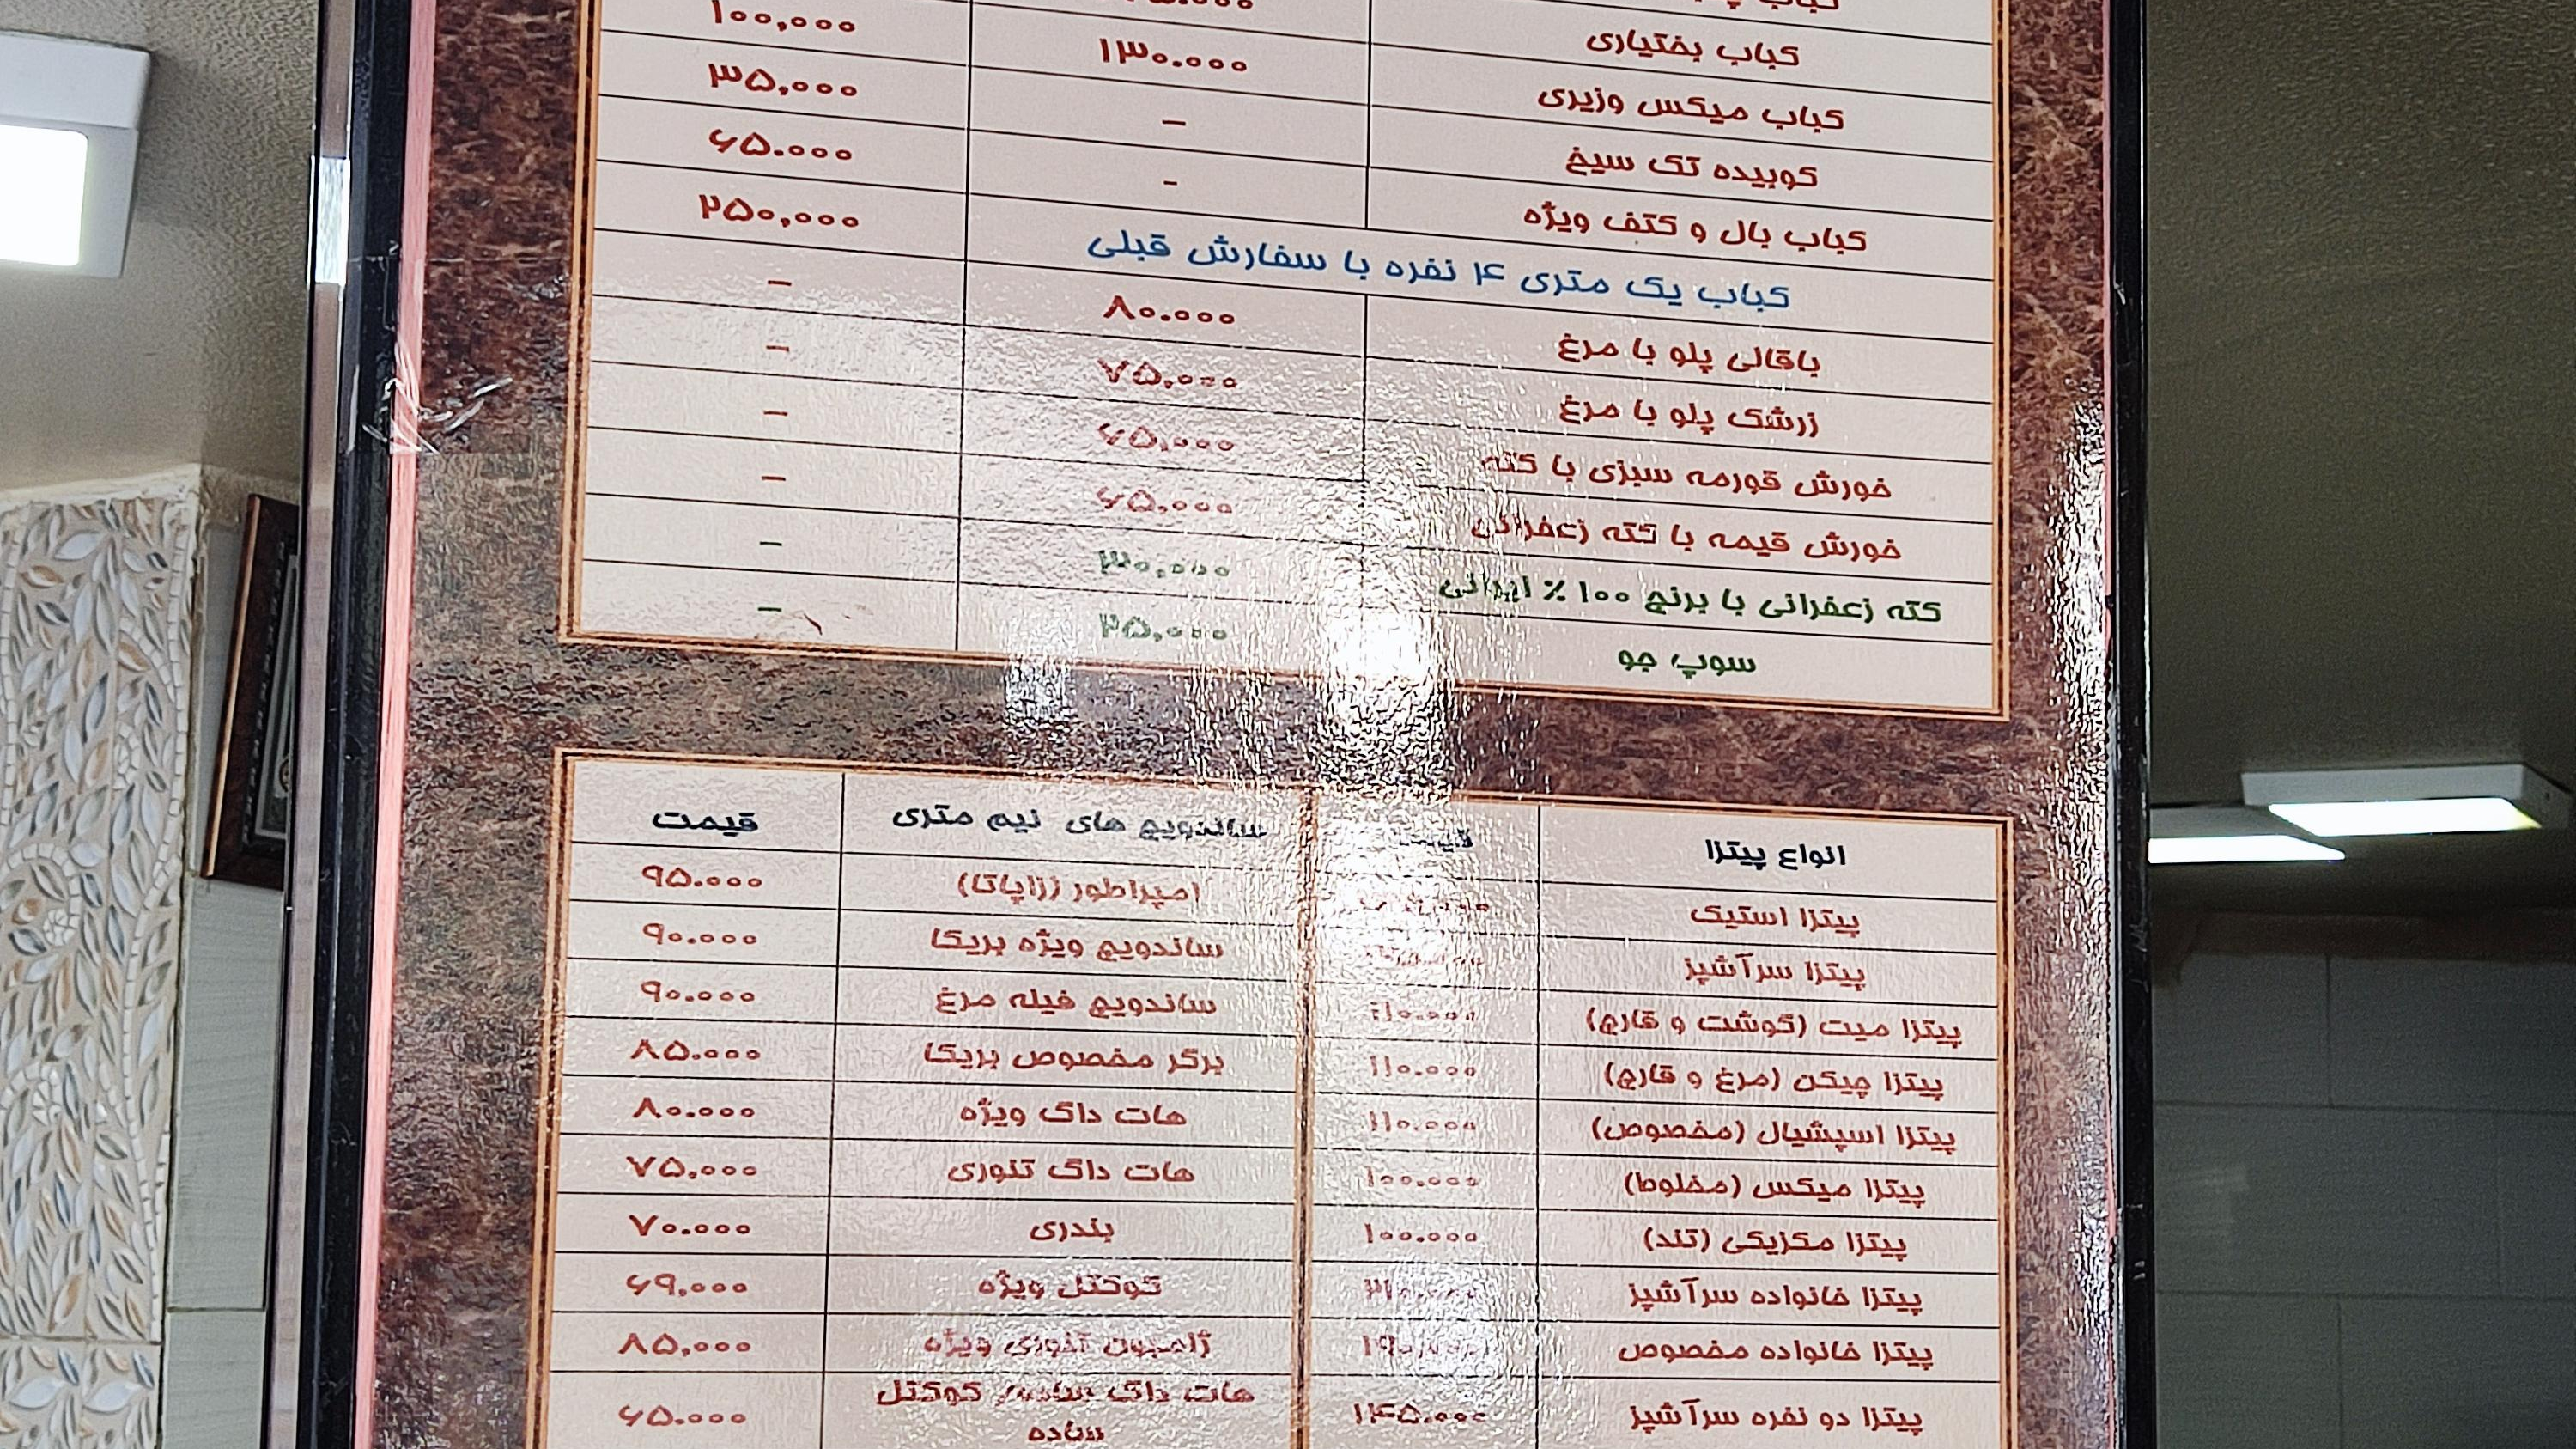 کباب بختیاری
کباب میکس وزیری ۱۳۰.۰۰۰ ۱۰۰,۰۰۰
کوبیده تک سیخ – ۳۵,۰۰۰
کباب بال و کتف ویژه - ۶۵.۰۰۰
کباب یک متری ۴ نفره با سفارش قبلی ۲۵۰,۰۰۰
باقالی پلو با مرغ ۸۰.۰۰۰ –
زرشک پلو با مرغ ۷۵,۰۰۰ –
خورش قورمه سبزی با کته ۶۵,۰۰۰ –
خورش قیمه با کته زعفرانی ۶۵,۰۰۰ –
کته زعفرانی با برنج ۱۰۰ ٪ ایرانی ۳۰,۰۰۰ –
سوپ جو ۲۵,۰۰۰ –
انواع پیتزا قیمت ساندویچ های نیم متری قیمت
پیتزا استیک امپراطور (زاپاتا) ۹۵.۰۰۰
پیتزا سرآشپز ساندویچ ویژه بریکا ۹۰.۰۰۰
پیتزا میت (گوشت و قارچ) ۱۱۰.۰۰۰ ساندویچ فیله مرغ ۹۰.۰۰۰
پیتزا چیکن (مرغ و قارچ) ۱۱۰.۰۰۰ برگر مخصوص بریکا ۸۵.۰۰۰
پیتزا اسپشیال (مخصوص) ۱۱۰.۰۰۰ هات داگ ویژه ۸۰.۰۰۰
پیتزا میکس (مخلوط) ۱۰۰.۰۰۰ هات داگ تنوری ۷۵,۰۰۰
پیتزا مکزیکی (تند) ۱۰۰.۰۰۰ بندری ۷۰.۰۰۰
پیتزا خانواده سرآشپز کوکتل ویژه ۶۹,۰۰۰
پیتزا خانواده مخصوص ۱۹۰,۰۰۰ ژامبون تنوری ویژه ۸۵,۰۰۰
پیتزا دو نفره سرآشپز ۱۴۵.۰۰۰ هات داگ ساده/ کوکتل ساده ۶۵.۰۰۰